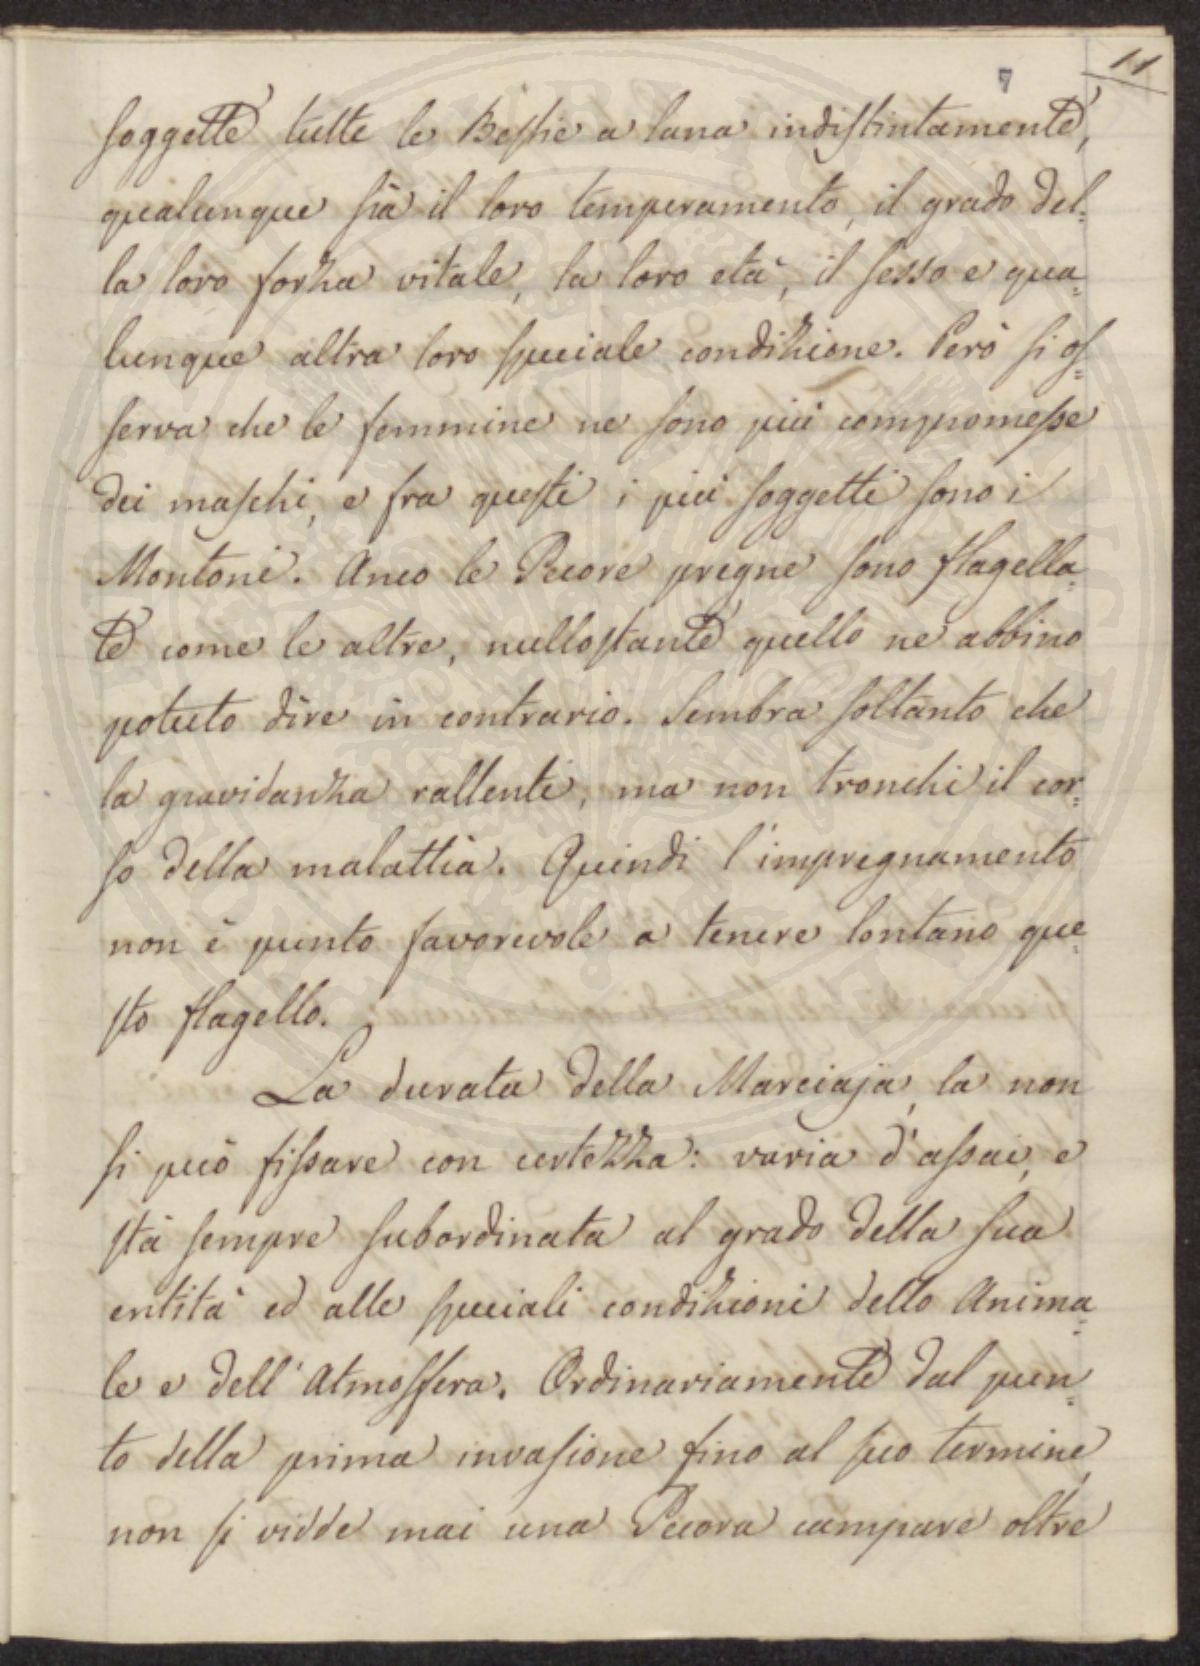 7
11
soggette tutte le Bestie a lana indistintamente,
qualunque sia il loro temperamento, il grado del=
la loro forza vitale, la loro età, il sesso e qua=
lunque altra loro speciale condizione. Però si os=
serva che le femmine ne sono più compromesse
dei maschi, e fra questi i più soggetti sono i
Montoni. Anco le Pecore pregne sono flagella=
te come le altre, nullostante quello ne abbino
potuto dire in contrario. Sembra soltanto che
la gravidanza rallenti, ma non tronchi il cor=
so della malattia. Quindi l'impregnamento
non è punto favorevole a tenere lontano que=
sto flagello.
La durata della Marciaja, la non
si può fissare con certezza: varia d'assai, e
stà sempre subordinata al grado della sua
entità ed alle speciali condizioni dello Anima=
le e dell'Atmosfera. Ordinariamente dal pun=
to della prima invasione fino al suo termine,
non si vidde mai una Pecora campare oltre